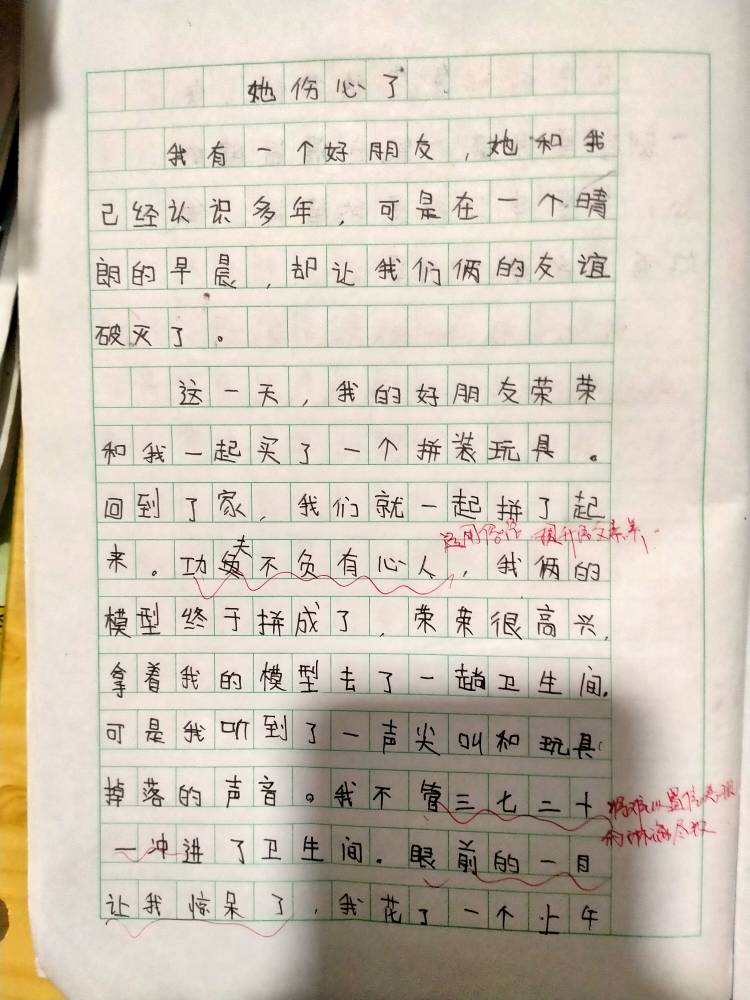 她伤心了
我有一个好朋友，她和我
已经认识多年，可是在一个晴
朗的早晨，却让我们俩的友谊
破灭了。
这一天，我的好朋友荣荣
和我一起买了一个拼装玩具。
回到了家，我们就一起拼了起
来。功夫不负有心人，我俩的
模型终于拼成了，荣荣很高兴，
拿着我的模型去了一趟卫生间。
可是我听到了一声尖叫和玩具
掉落的声音。我不管三七二十
一冲进了卫生间。眼前的一目
让我惊呆了，我花了一个上午